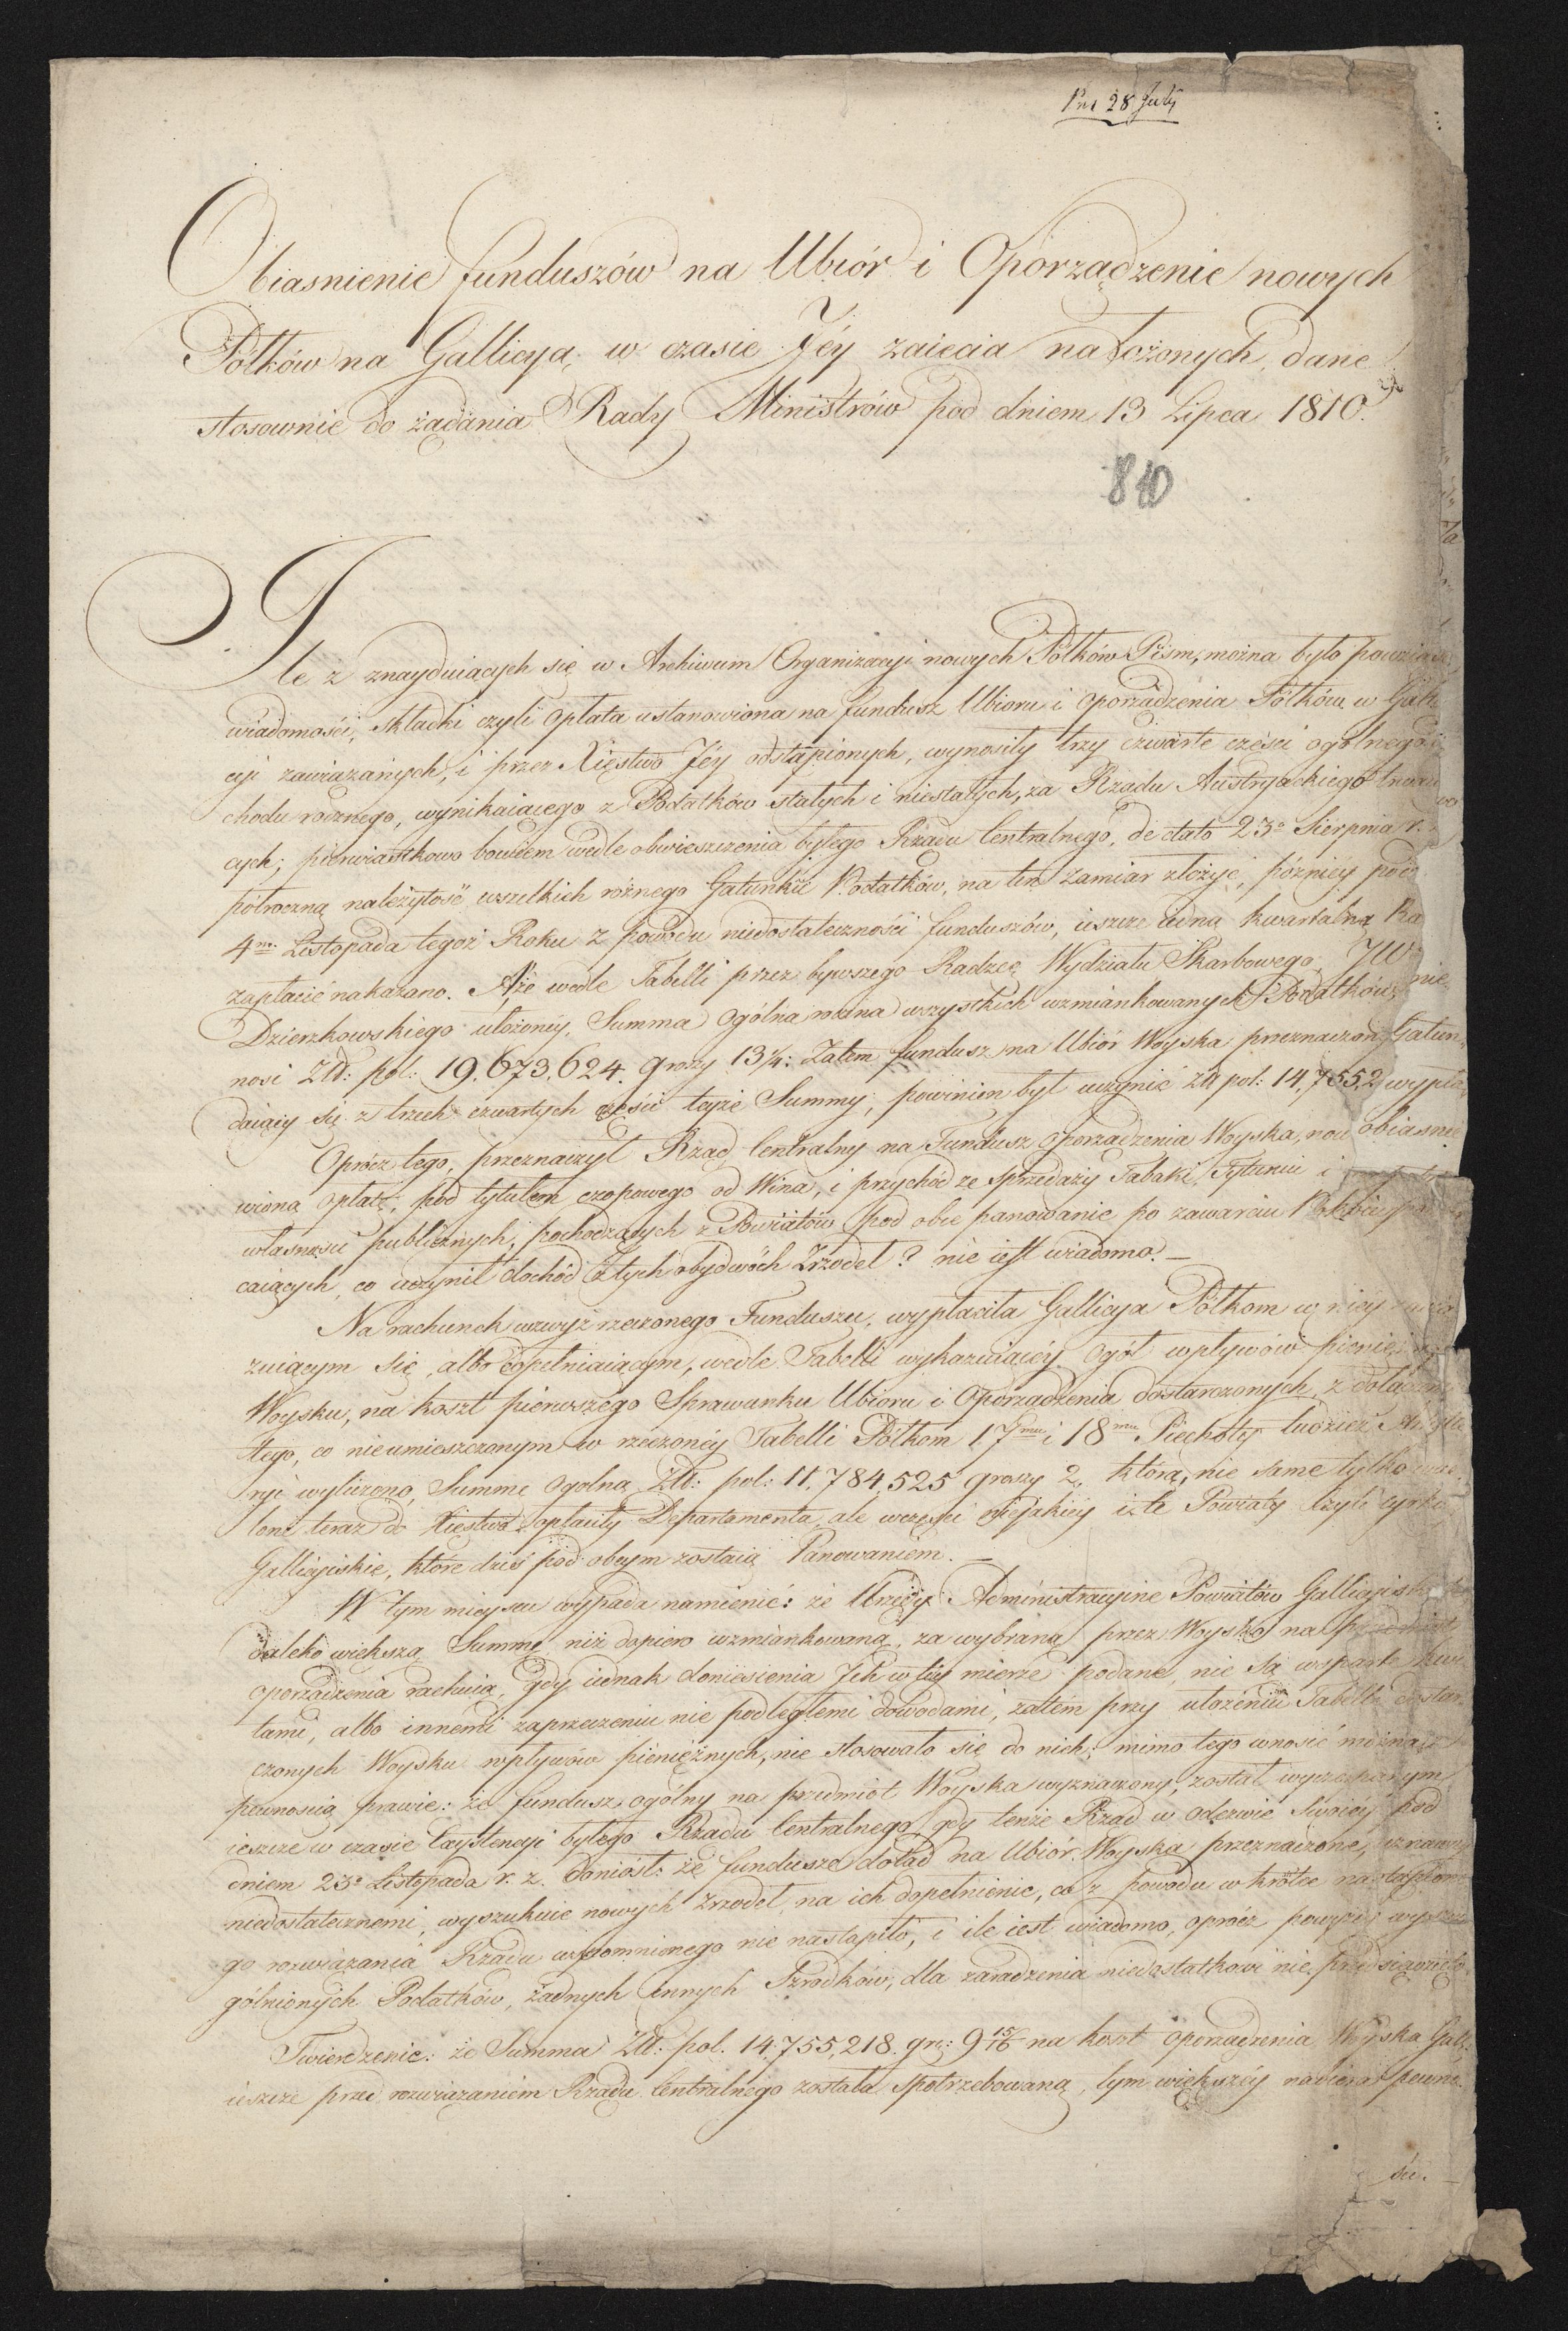 Prt 28 July
Obiasnienie funduszów na Ubiór i Oporządzenie nowych
Półków na Gallicyą, w czasie Jéy zaięcia nałożonych, dane
stosownie do żądania Rady Ministrów pod dniem 13 Lipca 1810.
810
Ile z znayduiących się w Archiwum Organizacyi nowych Półków Pism, można było
wiadomości, składki czyli opłata ustanowiona na fundusz Ubioru i oporządzenia Półków w
cyi zawiązanych, i przez Xięstwo Jéy odstąpionych, wynosiły trzy czwarte części ogólnego
chodu rocznego, wynikaiącego z Podatków stałych i niestałych, za Rządu Austryackiego
cych; pierwiastkowo bowiem wedle obwieszczenia byłego Rządu Centralnego, de dato 23º Sierpnia r.
półroczną należytość wszelkich różnego Gatunku Podatków, na ten zamiar złożyć, póżniéy pod
4m Listopada tegoż Roku z powodu niedostateczności funduszów, ieszcze iedną kwartalną
zapłacić nakazano. Aże wedle Tabelli przez bywszego Radzcę Wydziału Skarbowego JW
Dzierzkowskiego ułożonéy, Summa Ogólna roczna wszystkich wzmiankowanych Podatków
nosi Złł: pol: 19.673.624. groszy 13¼: Zatem fundusz na Ubiór Woyska przeznaczony
daiący się z trzech czwartych części teyże Summy, powinien był uczynić Złł pol: 14,755,2
Oprócz tego, przeznaczył Rząd Centralny na Fundusz Oporządzenia Woyska,
wioną opłatę, pod tytułem czopowego od Wina, i przychód ze sprzedaży Tabaki, Tytuniu i
własności publicznych, pochodzących z Powiatów pod obce panowanie po zawarciu Pokoiu
caiących, co uczynił dochód z tych obydwóch Zrzodeł? nie iest wiadomo.—
Na rachunek wzwyż rzeczonego Funduszu, wypłaciła Gallicya Półkom w niéy
zuiącym się, albo kopełniaiącym, wedle Tabelli wykazuiącéy Ogół wpływów
Woysku, na koszt pierwszego Sprawunku Ubioru i Oporządzenia dostarczonych, z
tego, co nieumieszczonym w rzeczonéy Tabelli Półkom 17mu i 18mu Piechoty tudzież
ryi wyliczono, Summę Ogólną Złł: pol: 11,784,525 groszy 2, którą, nie same tylko
lone teraz do Xięstwa opłaciły Departamenta, ale wczęści nieiakiéy i te Powiaty czyli
Gallicyiskie, które dziś pod obcym zostaią Panowaniem.—
W tym mieyscu wypada namienić: że Urzędy Administracyine Powiatów
daleko większą Summę niż dopiero wzmiankowaną, za wybraną przez Woysko na
oporządzenia rachuią, gdy iednak doniesienia Jch w téy mierze podane, nie są wsparte
tami, albo innemi zaprzeczeniu nie podległemi dowodami, zatém przy ułożeniu Tabelli
czonych Woysku wpływów pieniężnych, nie stosowało się do nich; mimo tego wnosić można
pewnością prawie: że fundusz ogólny na przedmiot Woyska wyznaczony, został wyczerpanym
ieszcze w czasie Exystencyi byłego Rządu Centralnego, gdy tenże Rząd w Odezwie Swoiéy pod
dniem 23º Listopada r. z. doniósł: że fundusze dotąd na Ubiór Woyska przeznaczone,
niedostatecznemi, wyszukuie nowych Zrzodeł, na ich dopełnienie, co z powodu wkrótce
go rozwiązania Rządu wspomnionego nie nastąpiło, i ile iest wiadomo, oprócz powyżéy
gólnionych Podatków, żadnych innych Szrodków, dla zaradzenia niedostatkowi nie
Twierdzenie: że Summa Złł: pol. 14,755,218. gr: 9 15/16 na koszt oporządzenia Woyska
ieszcze przed rozwiązaniem Rządu Centralnego została spotrzebowaną, tym większéy nabiera pewno-
ści.—